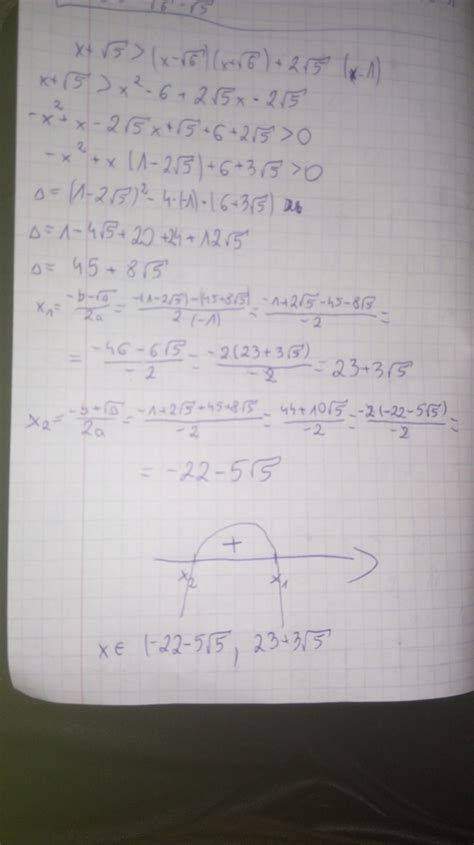 x+√5 > (x-√6)(x+√6)+2√5 (x-1)
x+√5 > x²-6+2√5x-2√5
-x²+x-2√5x+√5+6+2√5>0
-x²+x(1-2√5)+6+3√5>0
Δ=(1-2√5)²-4·(-1)·(6+3√5)
Δ=1-4√5+20+24+12√5
Δ= 45+8√5
x₁= -b-√Δ/2a = -(1-2√5)-(45+8√5)/2·(-1) = -1+2√5-45-8√5/-2 =
= -46-6√5/-2 = -2(23+3√5)/-2 = 23+3√5
x₂= -b+√Δ/2a = -1+2√5+45+8√5/-2 = 44+10√5/-2 = -2(-22-5√5)/-2 =
= -22-5√5
+
x₂ x₁
x∈ (-22-5√5, 23+3√5